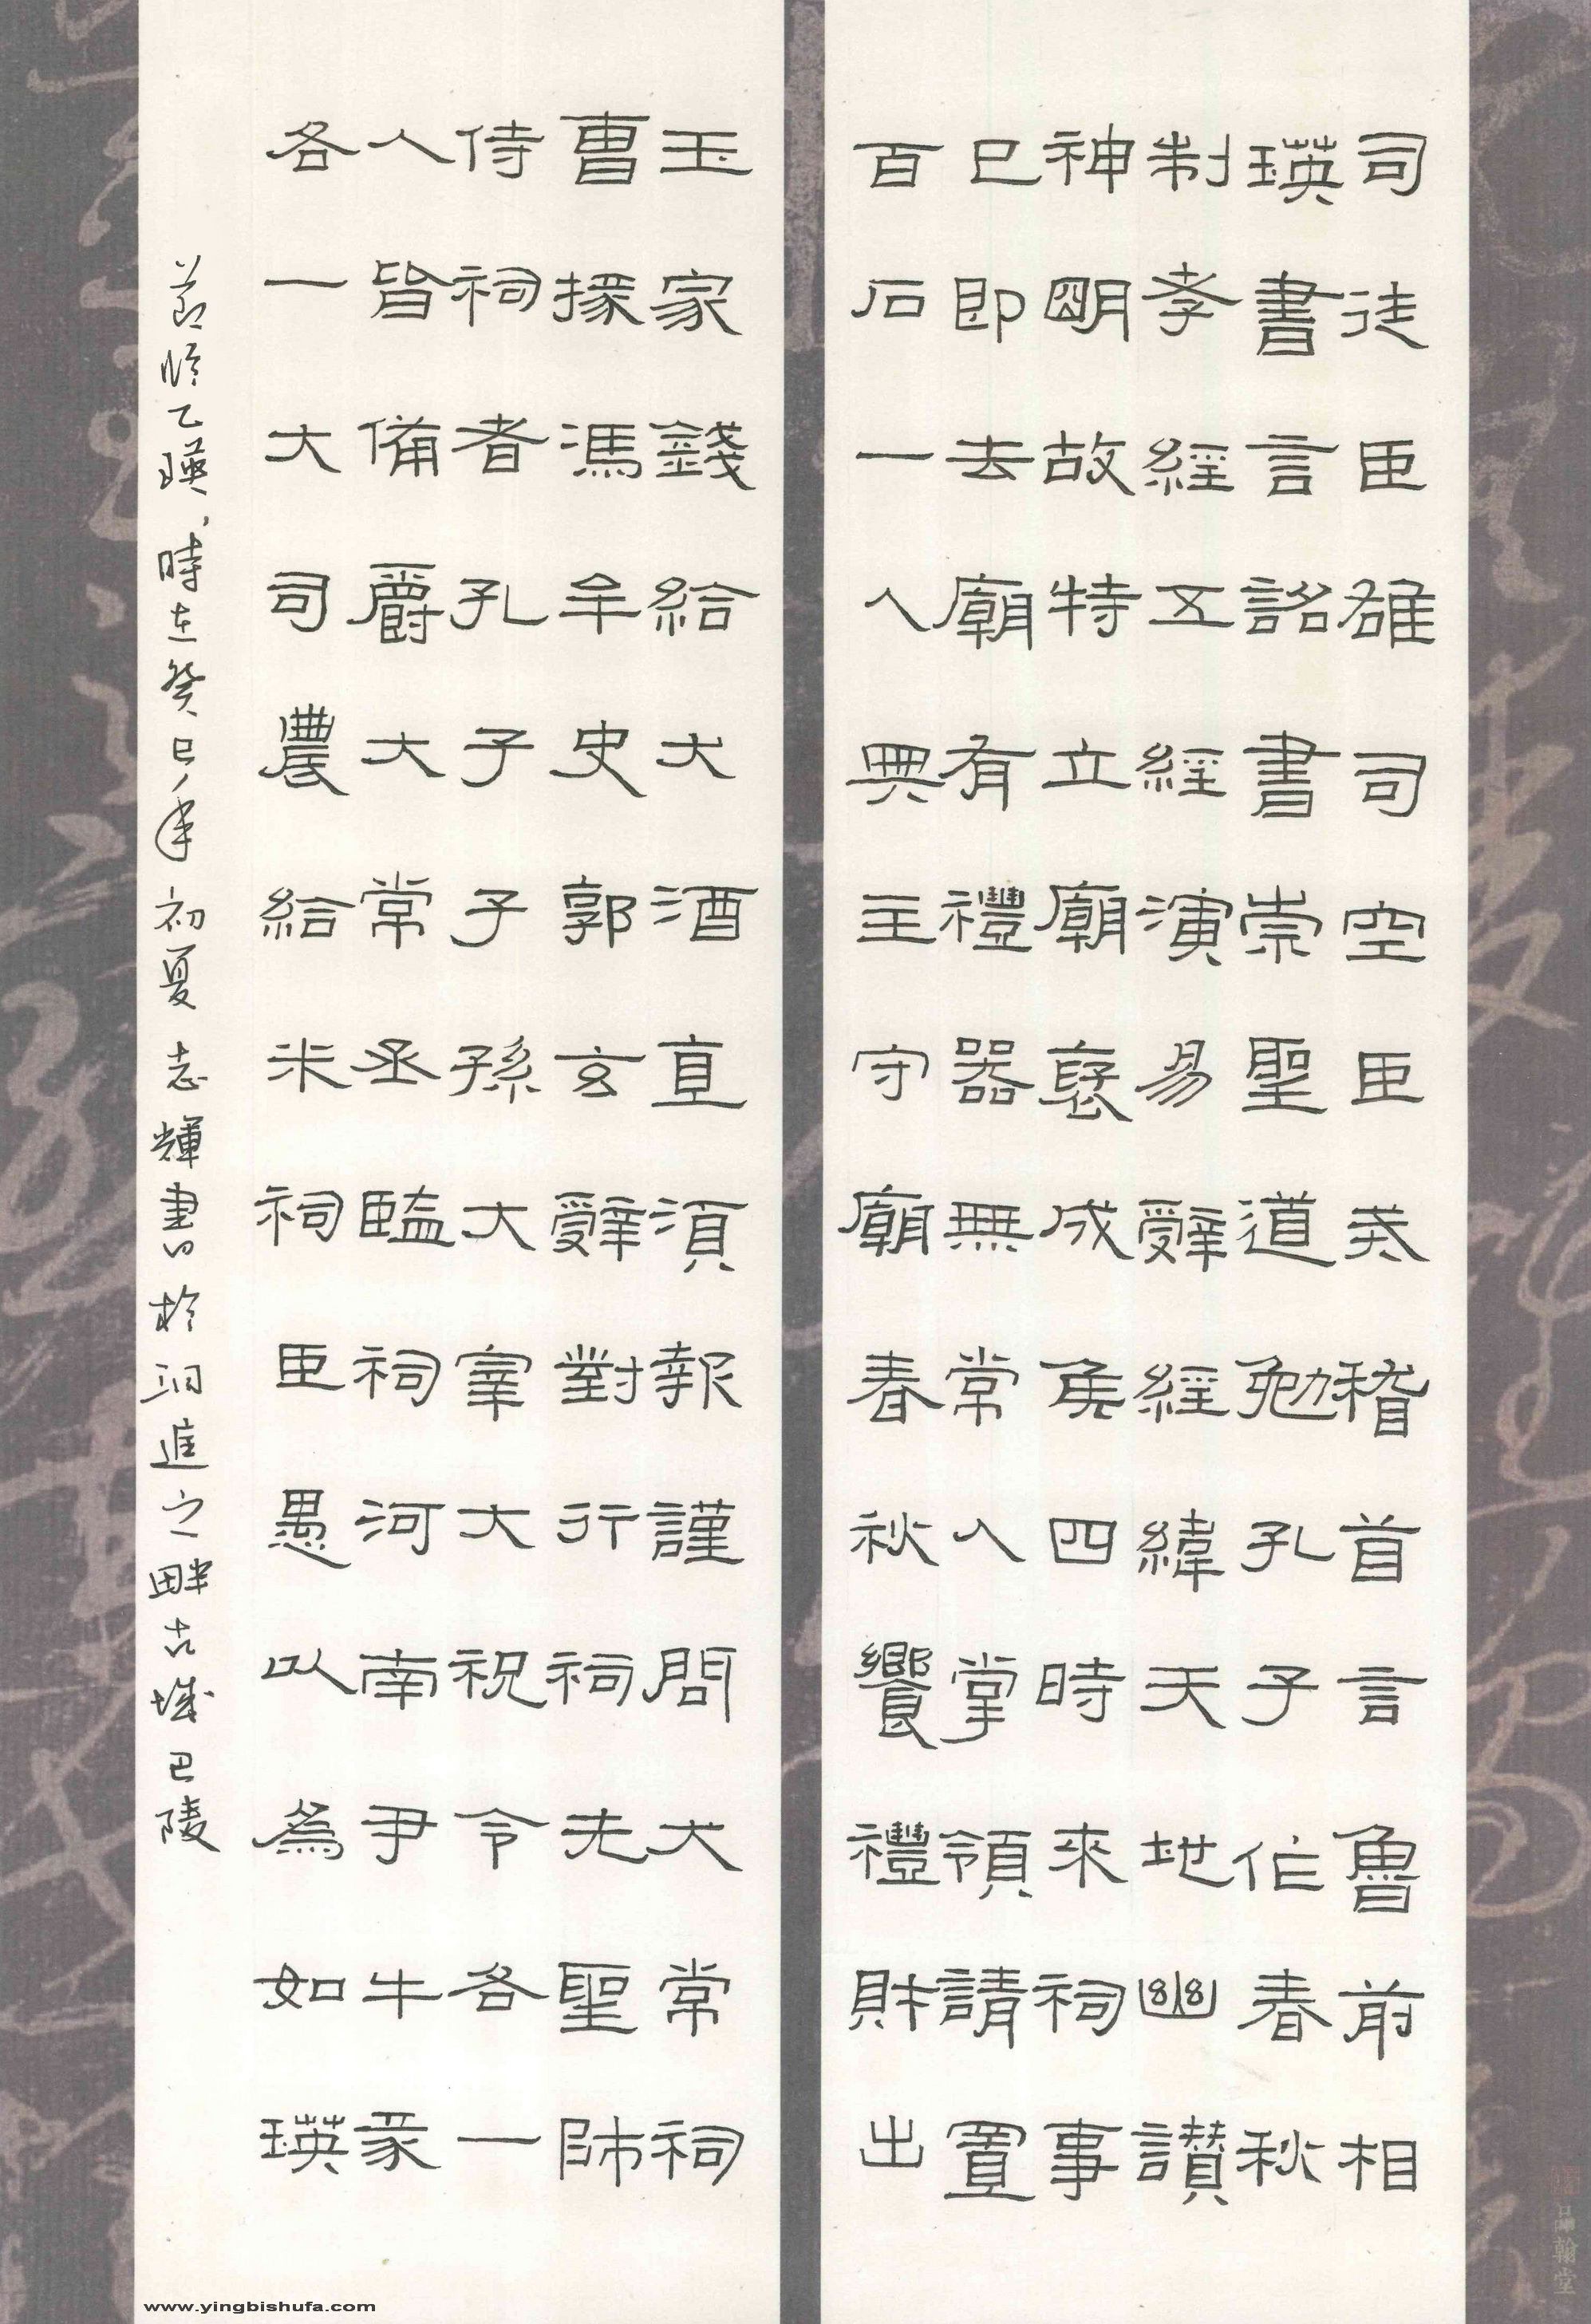 司徒臣雄司空臣戒稽首言魯前相
瑛書言詔書崇聖道勉孔子作春秋
制孝經五經演易辭經緯天地幽讃
神明故特立廟褒成侯四時來祠事
已即去廟有禮器無常人掌領請置
百石一人典主守廟春秋饗禮財出
玉家錢給犬酒直須報謹問大常祠
曹掾馮牟史郭玄辭對行祠先聖師
侍祠者孔子子孫大宰大祝令各一
人皆備爵大常丞臨祠河南尹牛豕
各一大司農給米祠臣愚以為如瑛
節臨乙瑛，時在癸巳年初夏志輝書於洞庭之畔古城巴陵
www.yingbishufa.com
品翰堂